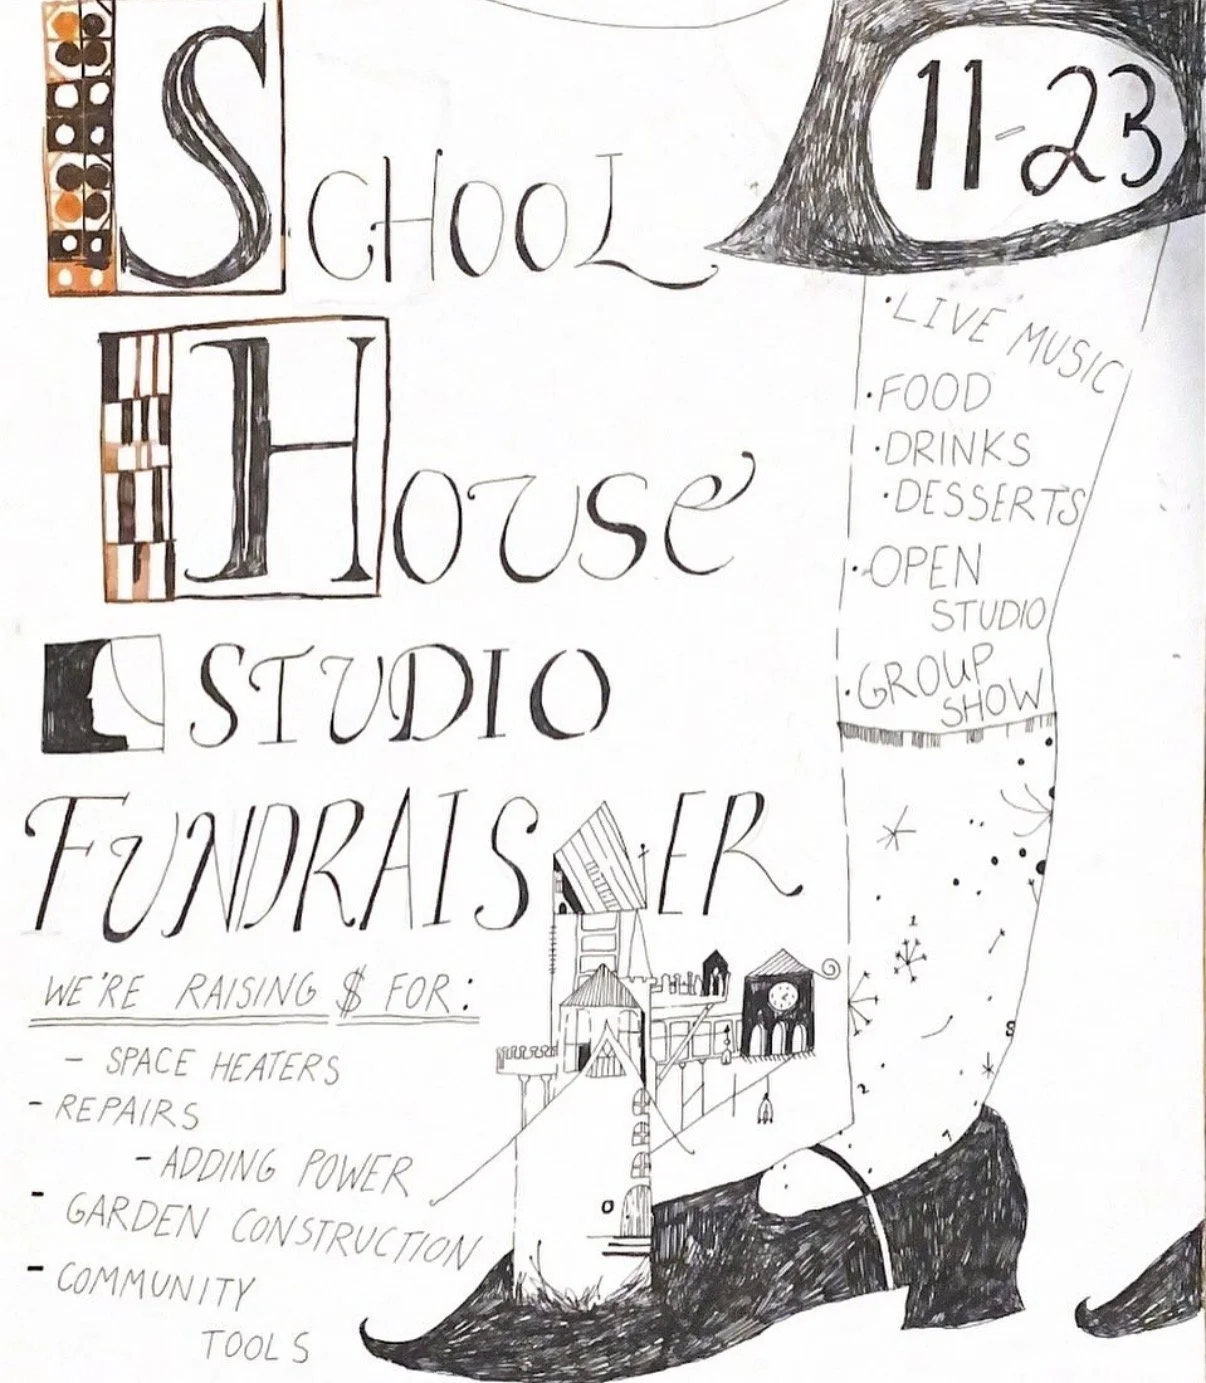 SCHOOL
HOUSE
STUDIO
FUNDRAISER
WE'RE RAISING $ FOR:
- SPACE HEATERS
- REPAIRS
- ADDING POWER
- GARDEN CONSTRUCTION
- COMMUNITY
TOOLS
11-23
• LIVE MUSIC
• FOOD
• DRINKS
• DESSERTS
• OPEN
STUDIO
• GROUP
SHOW
1
8
2
7